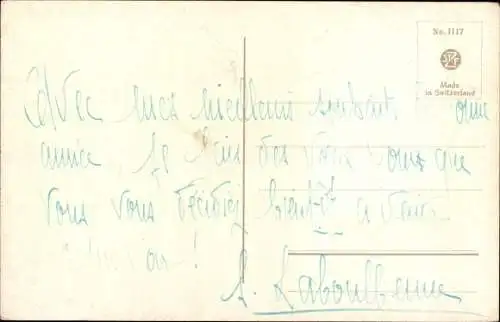 No. 1117
Made
in Switzerland
Avec mes meilleurs souhaits
année, je fais des vœux pour que
vous vous décidiez bientôt à venir
A. Laboulbenne